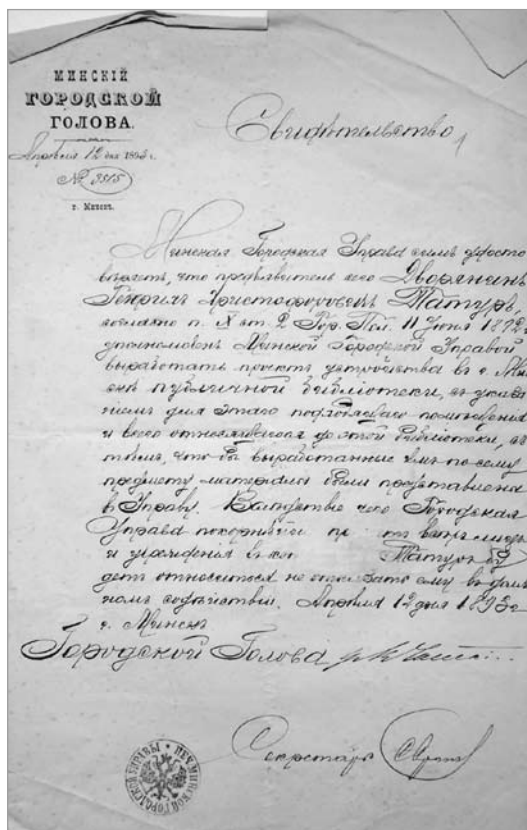 МИНСКІЙ
ГОРОДСКОЙ
ГОЛОВА.
Апрѣля 12 дня 1893 г.
№ 3515
г. Минскъ.
Свидѣтельство
Минская Городская Управа симъ удосто
вѣряетъ, что предъявитель сего Дворянинъ
Генрихъ Христофоровъ Татуръ,
согласно п. X ст. 2 Гор. Пол. 11 Іюня 1892 г.
уполномоченъ Минской Городской Управой
выработать проектъ устройства въ г. Мин
скѣ публичной библіотеки, съ указа
ніемъ для этого подходящаго помѣщенія
и всего относящагося до этой библіотеки, съ
тѣмъ, что бы выработанные имъ по сему
предмету матеріалы были представлены
въ Управу. Вслѣдствіе чего Городская
Управа покорнѣйше лицъ
и учрежденія Татуръ бу
детъ относиться не ему въ
номъ содѣйствіи. Апрѣля 12 дня 1893 г.
г. Минскъ
Городской Голова
Секретарь
ПЕЧ. МИНСКОЙ ГОРОДСКОЙ УПРАВЫ